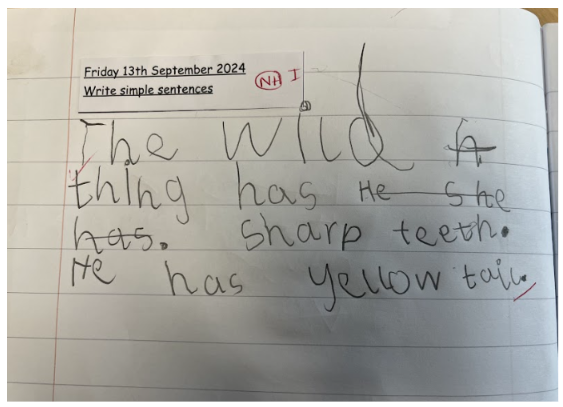 Friday 13th September 2024
Write simple sentences
NH I
The Wild A
thing has He she
has. sharp teeth.
He has yellow tail.